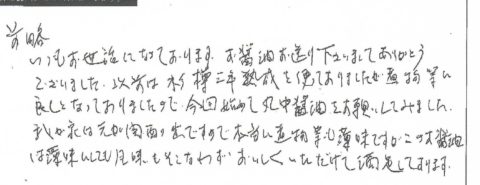 前略
いつもお世話になっております。お醤油お送り下さいましてありがとう
ございました。以前は木樽三年熟成を使ておりましたが煮物等に
良しとなっておりましたので、今回始めて丸中醤油をお願いしてみました。
我が家は元が関西の出ですので本当に煮物等も薄味ですがこのお醤油
は薄味にしても風味もそこなわずおいしくいただけて満足しております。